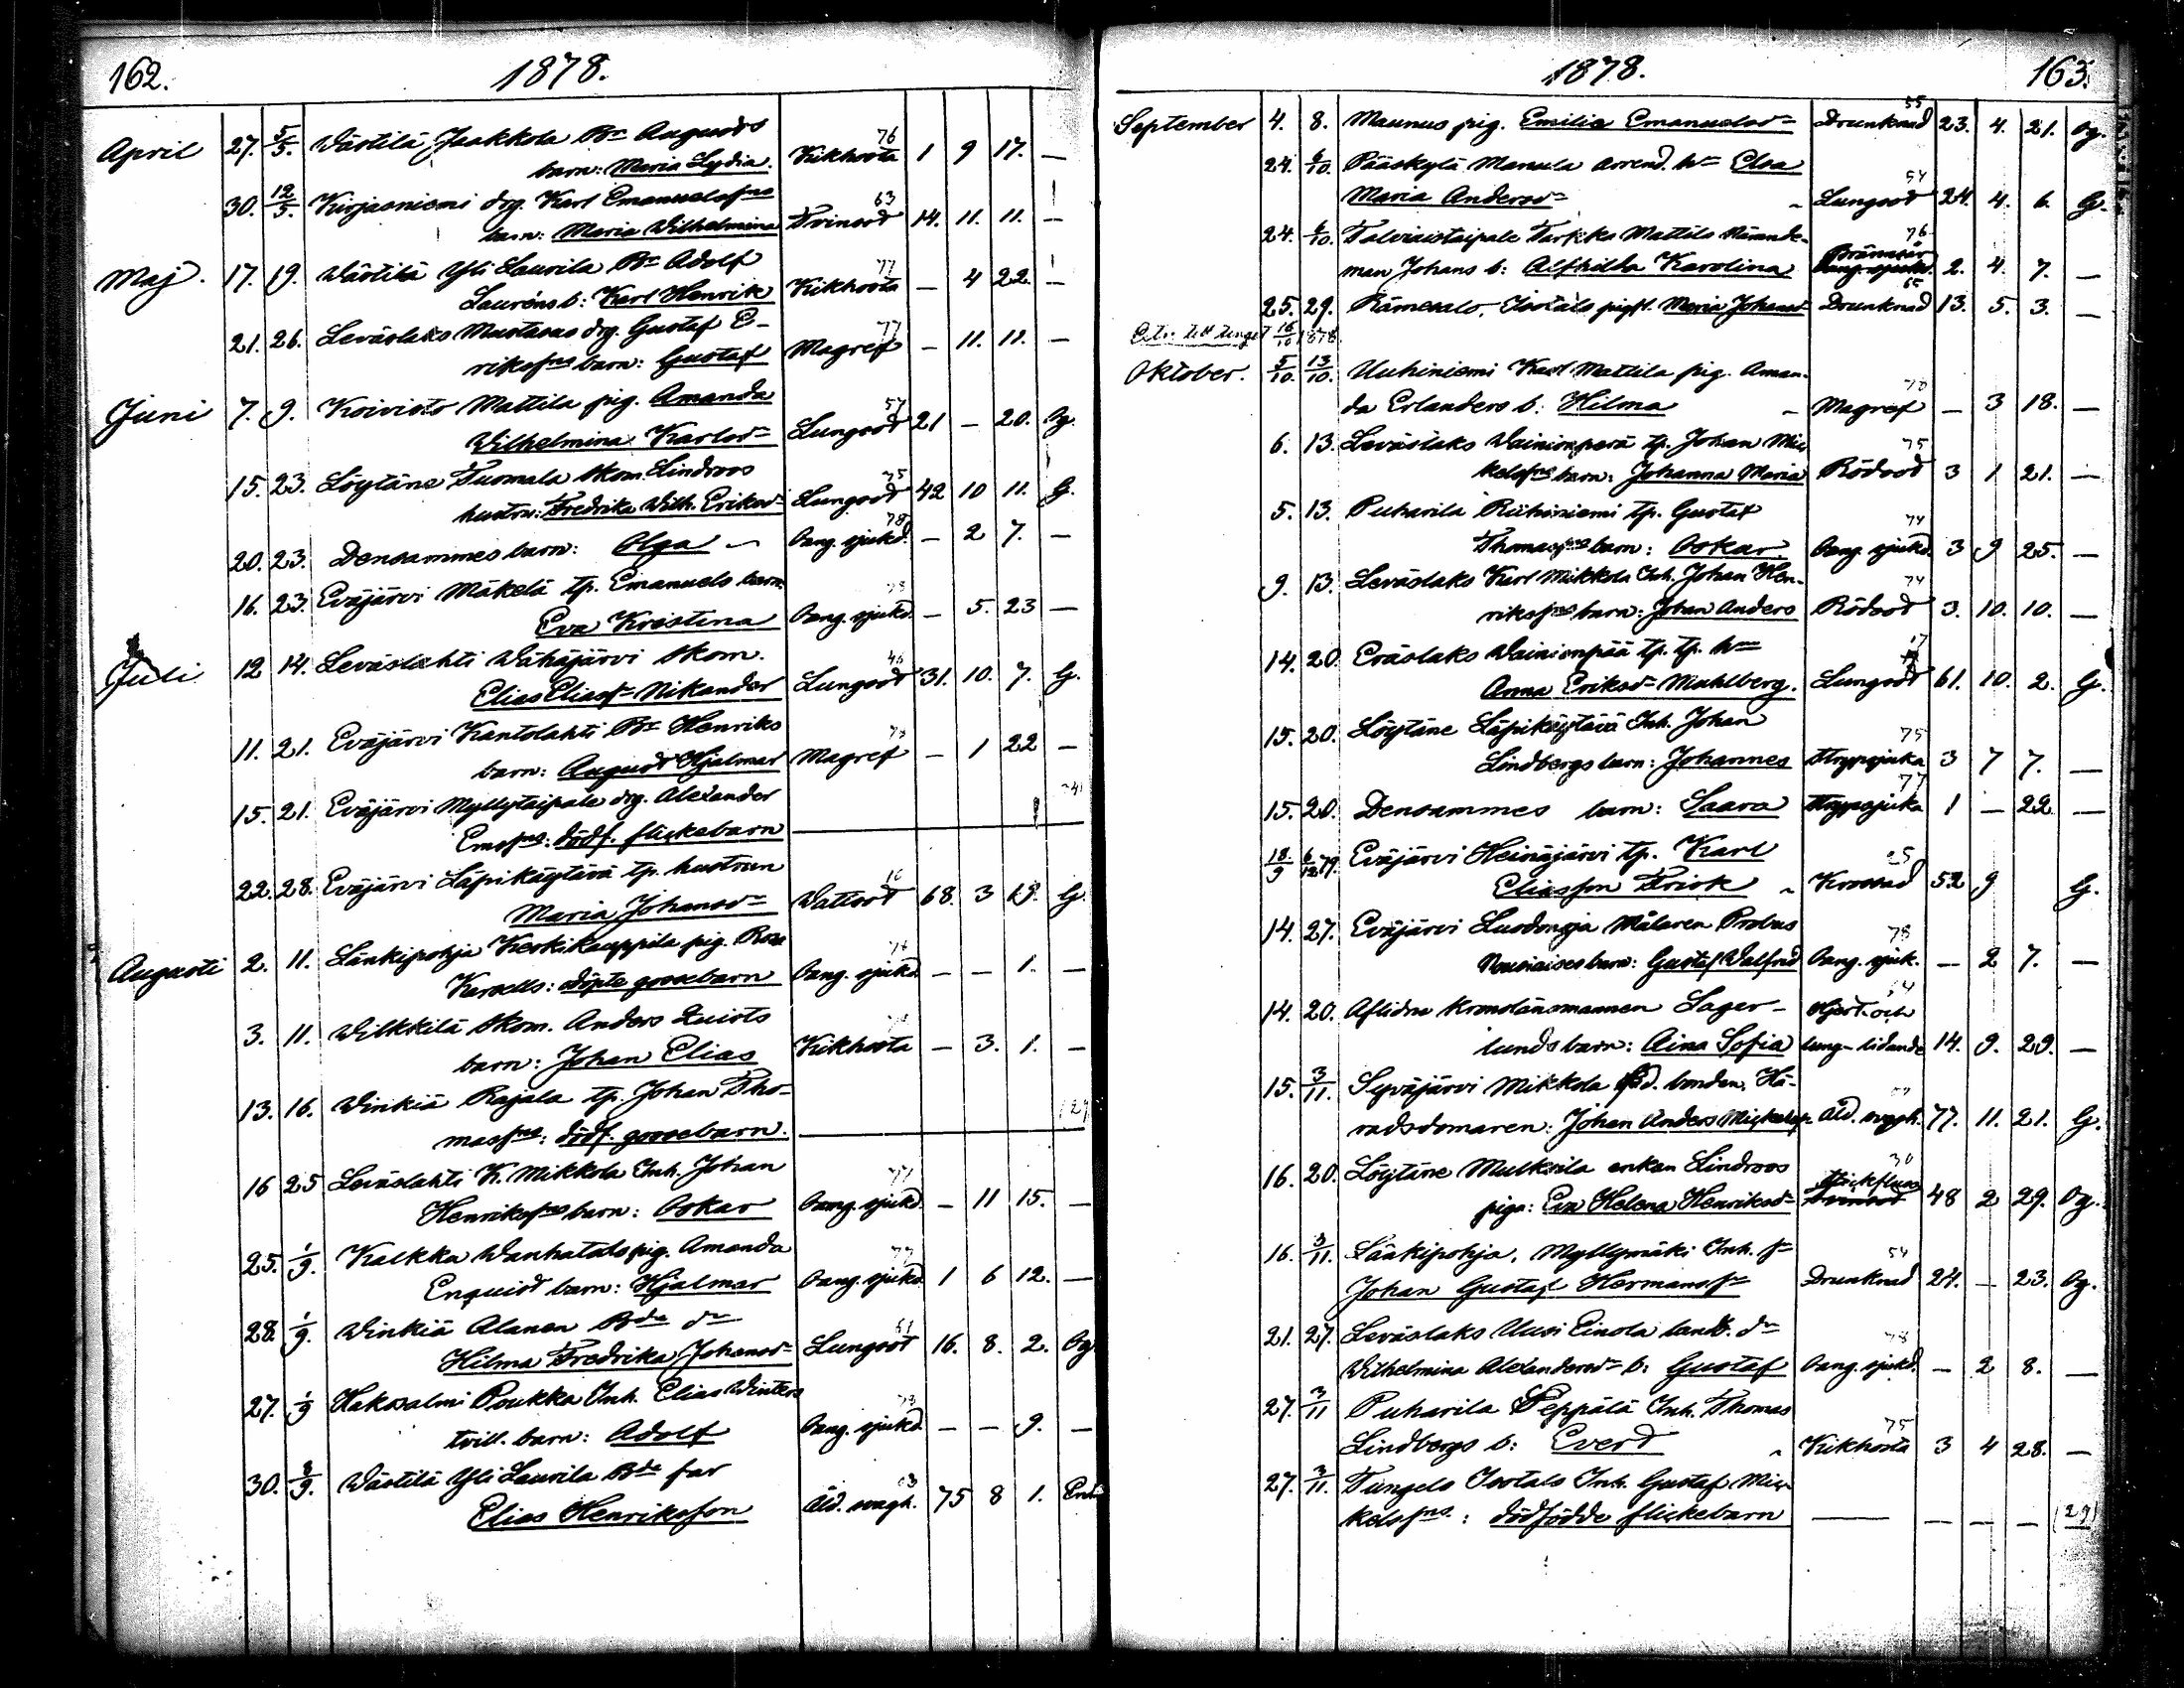 162. 1878.
April 27. 5/5. Wästilä Jaakkola Bn Augusts 76
barn: Maria Lydia. Kikhosta 1 9 17. —
30. 12/5. Kirjasniemi drg. Karl Emanuelsfns 63
barn: Maria Wilhelmina Tvinsot 14. 11. 11. —
Maj. 17. 19. Wästilä Yli Laurila Bn Adolf 77
Lauréns b: Karl Henrik Kikhosta — 4 22. —
21. 26. Leväslaks Mustasus drg. Gustaf E- 77
riksfns barn: Gustaf Magref — 11. 11. —
Juni 7. 9. Koivisto Mattila pig. Amanda 57
Wilhelmina Karlsd Lungsot 21 — 20. Og.
15. 23. Löytäne Tuomala skom. Lindroos 35
hustru: Fredrika Wilh. Eriksd Lungsot 42 10 11. G.
20. 23. Densammes barn: Olga 78 Bang. sjukd. — 2 7. —
16. 23. Eväjärvi Mäkelä tp. Emanuels barn
Eva Kristina Bang. sjukd. — 5. 23 —
Juli 12 14. Leväslahti Wähäjärvi skom. 46
Elias Eliasfn Nikander Lungsot 31. 10. 7. G.
11. 21. Eväjärvi Kantolahti Bn Henriks 78
barn: August Hjalmar Magref — 1 22 —
15. 21. Eväjärvi Myllytaipale drg. Alexander
Emsfns: dödf. flickebarn
22. 28. Eväjärvi Läpikäytävä tp. hustrun 10
Maria Johansd Wattsot 68. 3 19. G.
Augusti 2. 11. Länkipohja Keskikauppila pig. Rosa 78
Karsells: döpte gossebarn Bang. sjukd. — — 1. —
3. 11. Wilkkilä skom. Anders Quists
barn: Johan Elias Kikhosta — 3. 1. —
13. 16. Winkiä Rajala tp. Johan Tho-
masfns: dödf. gossebarn.
16 25 Leväslahti K. Mikkola Inh. Johan 77
Henriksfns barn: Oskar Bang. sjukd. — 11 15. —
25. 1/9. Kalkka Wanhatalo pig. Amanda 77
Enquist barn: Hjalmar Bang. sjukd. 1 6 12. —
28. 1/9. Winkiä Alanen Bde dr 61
Hilma Fredrika Johansd Lungsot 16. 8. 2. Og
27. 1/9 Hakosalmi Poukka Inh. Elias Winters
tvill. barn: Adolf Bang. sjukd. — — 9. —
30. 8/9. Wästilä Yli Laurila Bde far 03
Elias Henriksfon Åld. svagh. 75 8 1. Enkl
1878. 163.
September 4. 8. Maunus pig. Emilia Emanuelsd 55 Drunknad 23. 4. 21. Og.
24. 6/10. Pääskylä Manula arrend. hu Elsa
Maria Andersd 54 Lungsot 24. 4. 6. G.
24. 6/10. Talviaistaipale Tarkka Mattila Nämnde- 76
man Johans b: Alfhilda Karolina Brännsår 2. 4. 7. —
25. 29. Rämesalo, Isotalo pigfl. Maria Johansd 65 Drunknad 13. 5. 3. —
Extr. till tinget 16/10 1878
Oktober. 5/10. 13/10. Uuhiniemi Karl Mattila pig. Aman-
da Erlanders b: Hilma 78 Magref — 3 18. —
6. 13. Leväslaks Wainionperä tp. Johan Mic-
kelsfns barn: Johanna Maria 75 Rödsot 3 1 21. —
5. 13. Puharila Riihiniemi tp. Gustaf
Thomasfns barn: Oskar 74 Bang. sjukd. 3 9 25. —
9. 13. Leväslaks Karl Mikkola Inh. Johan Hen-
riksfns barn: Johan Anders 74 Rödsot 3. 10. 10. —
14. 20. Eväslaks Wainionpää tp. tp. hu 17
Anna Eriksd Mahlberg. Lungsot 61. 10. 2. G.
15. 20. Löytäne Läpikäytävä Inh. Johan
Lindbergs barn: Johannes 75 Strypsjuka 3 7 7. —
15. 20. Densammes barn: Saara 77 Strypsjuka 1 — 22. —
18./9 6/12 79. Eväjärvi Heinäjärvi tp. Karl
Eliasfon Frisk 25 Krossad 52 9 G.
14. 27. Eväjärvi Luodonoja Målaren Probus
barn: Gustaf Walfrid 78 Bang. sjuk. — 2 7. —
14. 20. Aflidne kronolänsmannen Lager- Hjert- och
lunds barn: Aina Sofia lung-lidande 14. 9. 29. —
15. 3/11. Syväjärvi Mikkola bonden, Hä-
radsdomaren: Johan Anders Mickelsfn Åld. svagh. 77. 11. 21. G.
16. 20. Löytäne Mulkoila enkan Lindroos 30
piga: Eva Helena Henriksd Stickfluss 48 2 29. Og.
16. 3/11. Länkipohja, Myllymäki Inh. fn 54
Johan Gustaf Hermansfn Drunknad 24. — 23. Og.
21. 27. Leväslaks Uusi Einola landb. dr 78
Wilhelmina Alexandersd b: Gustaf Bang. sjukd. — 2 8. —
27. 3/11 Puharila Seppälä Inh. Thomas
Lindbergs b: Everd 75 Kikhosta 3 4 28. —
27. 3/11. Tungelo Isotalo Inh. Gustaf Mic-
kelsfns: dödfödde flickebarn — — — — (29)